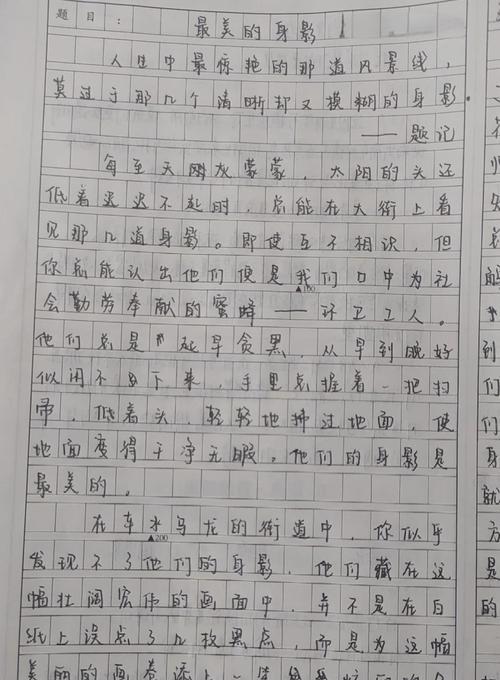 题目： 最美的身影
人生中最惊艳的那道风景线，
莫过于那几个清晰却又模糊的身影。
——题记
每至天刚灰蒙蒙，太阳的头还
低着迟迟不起时，总能在大街上看
见那几道身影。即使互不相识，但
你总能认出他们便是我们口中为社
▲100
会勤劳奉献的蜜蜂——环卫工人。
他们总是"起早贪黑，从早到晚好
似闲不下来，手里总握着一把扫
帚，低着头，轻轻地拂过地面，使
地面变得干净无暇。他们的身影是
最美的。
在车水马龙的街道中，你似乎
▲200
发现不了他们的身影，他们藏在这
幅壮阔宏伟的画面中，并不是在白
纸上误点了几枚黑点，而是为这幅
美丽的画卷添上一